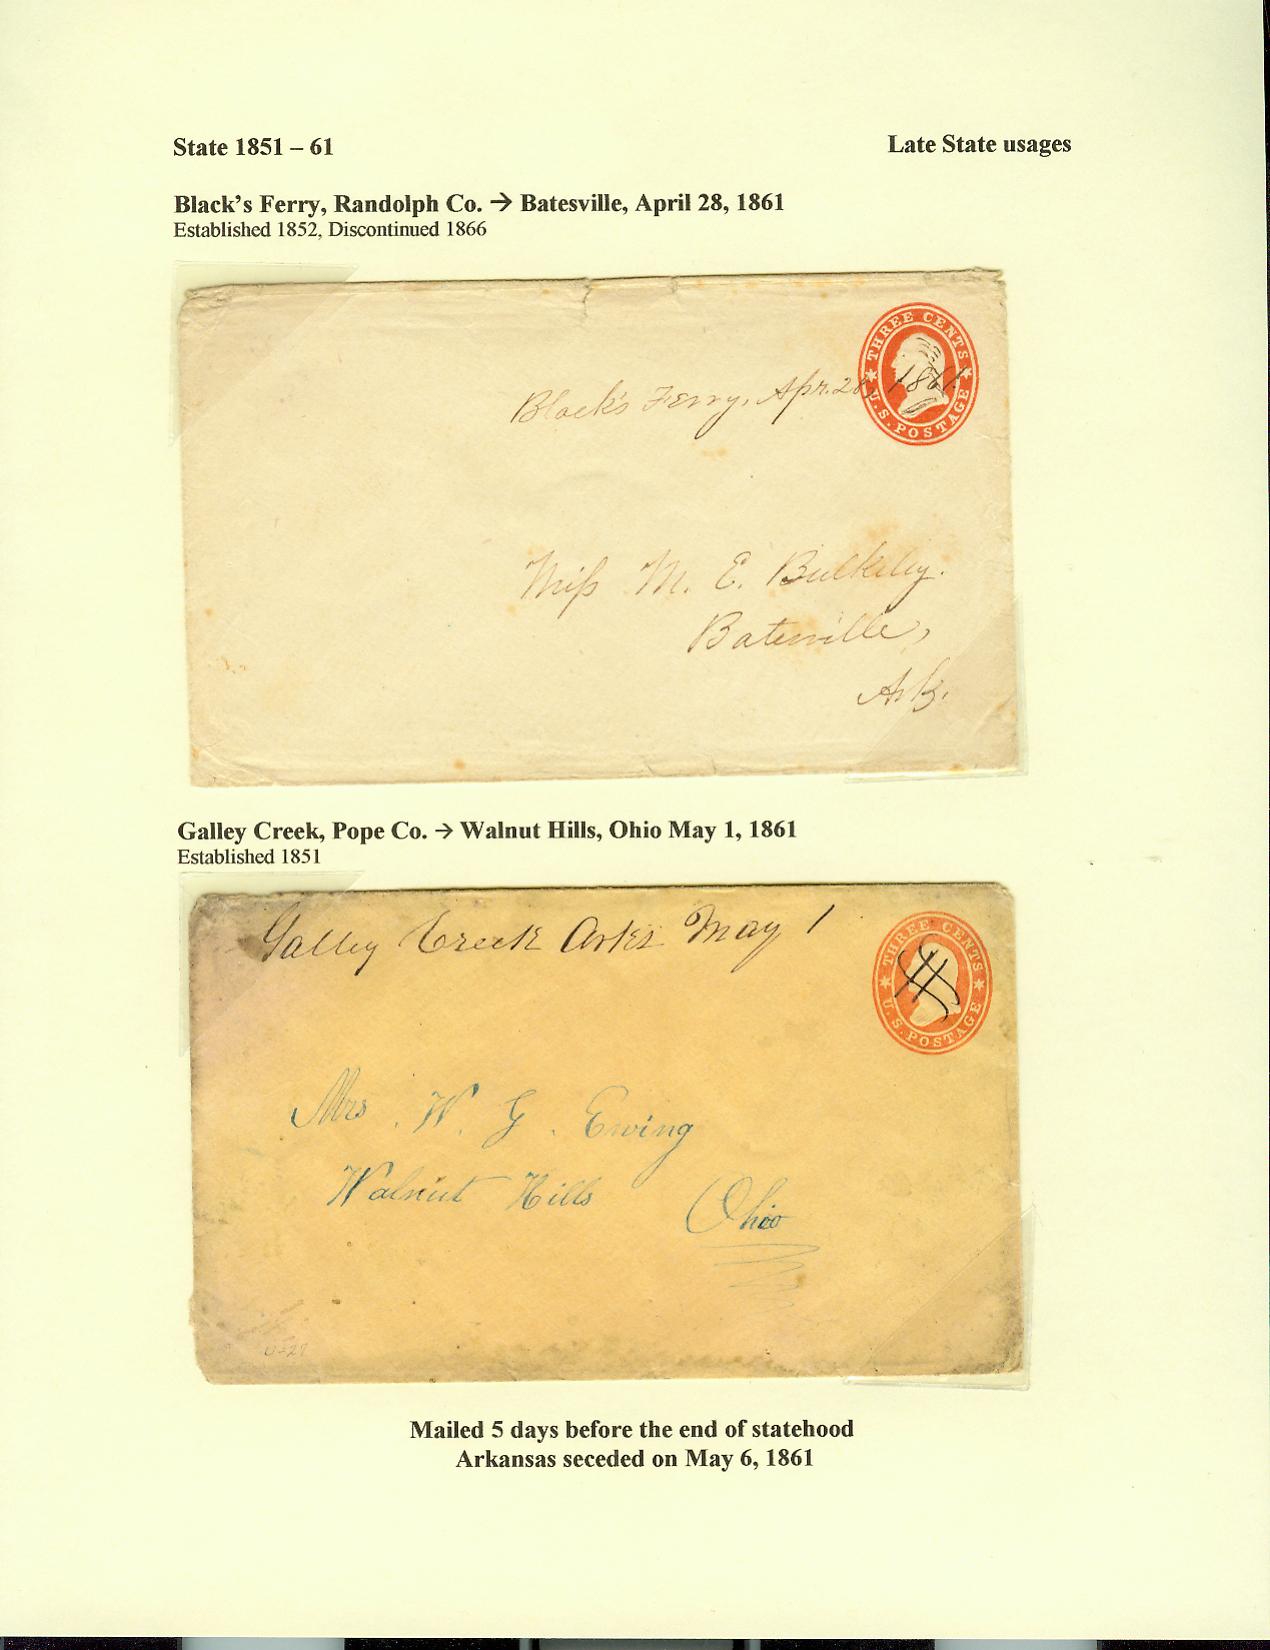 State 1851 – 61
Late State usages
Black's Ferry, Randolph Co. → Batesville, April 28, 1861
Established 1852, Discontinued 1866
THREE CENTS
U.S. POSTAGE
Black's Ferry, Apr. 28, 1861.
Miss M. E. Bulkeley.
Batesville,
Ark.
Galley Creek, Pope Co. → Walnut Hills, Ohio May 1, 1861
Established 1851
Galley Creek Arks May 1
THREE CENTS
U.S. POSTAGE
Mrs. W. G. Ewing
Walnut Hills Ohio
Mailed 5 days before the end of statehood
Arkansas seceded on May 6, 1861